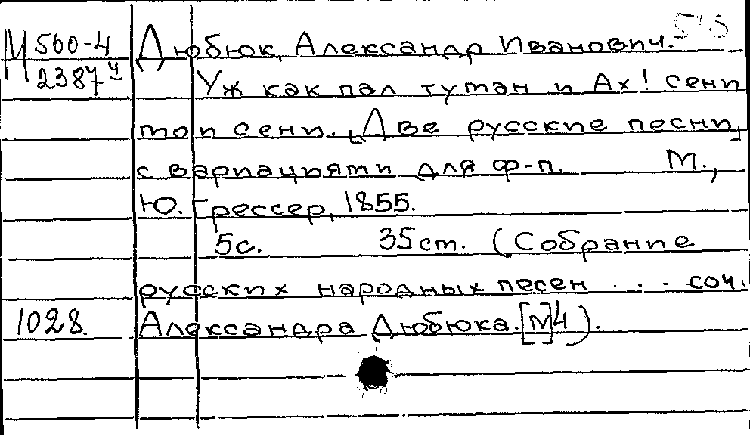 М 560-4
2387 ч
Дюбюк, Александр Иванович.
Уж как пал туман и Ах! сени
мои сени. [Две русские песни]
с вариациями для ф-п. М.,
Ю. Грессер, 1855.
5с. 35см. (Собрание
русских народных песен . . . соч.
1028. Александра Дюбюка. [№]4).